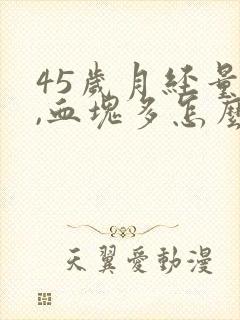 45歲月經量
,血塊多怎麼
天翼愛動漫